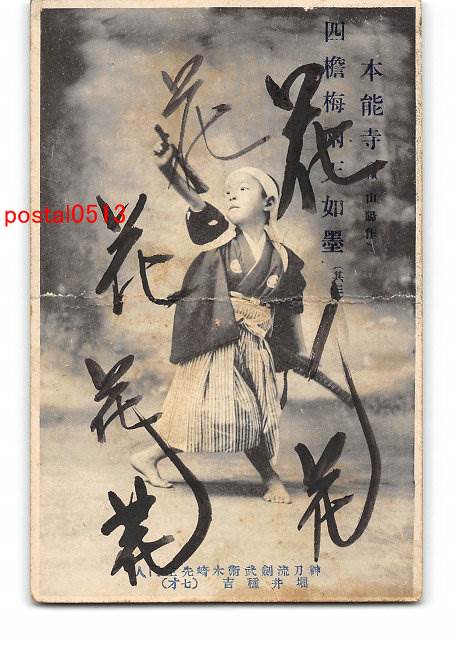 本能寺 山陽作
四檐梅雨天如墨 (其三)
花
花
花
花
花
花
花
postal0513
神刀流剣武術水崎先生門人
堀井種吉 (七才)